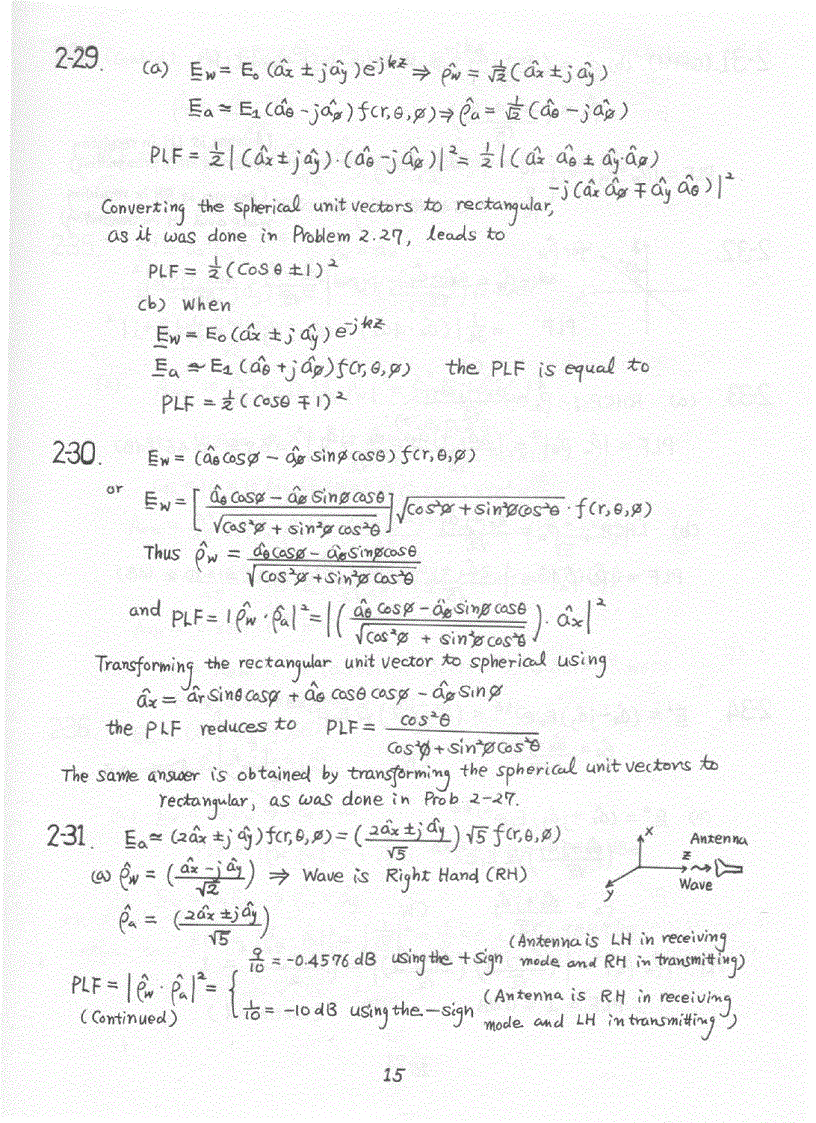 2-29. (a) E̲w = E₀(âx ± jây)e^{-jkz} ⇒ ρ̂w = 1/√2 (âx ± jây)
E̲a ≃ E₁(âθ - jâø) f(r,θ,ø) ⇒ ρ̂a = 1/√2 (âθ - jâø)
PLF = 1/2 |(âx ± jây)·(âθ - jâø)|² = 1/2 |(âx âθ ± ây·âø)
-j(âx âø ∓ ây âθ)|²
Converting the spherical unit vectors to rectangular,
as it was done in Problem 2.27, leads to
PLF = 1/2 (cosθ ± 1)²
(b) When
E̲w = E₀(âx ± jây)e^{-jkz}
E̲a ≃ E₁(âθ + jâø) f(r,θ,ø) the PLF is equal to
PLF = 1/2 (cosθ ∓ 1)²
2-30. E̲w = (âθ cosø - âø sinø cosθ) f(r,θ,ø)
or E̲w = [ (âθ cosø - âø sinø cosθ) / √(cos²ø + sin²ø cos²θ) ] √(cos²ø + sin²ø cos²θ) · f(r,θ,ø)
Thus ρ̂w = (âθ cosø - âø sinø cosθ) / √(cos²ø + sin²ø cos²θ)
and PLF = |ρ̂w · ρ̂a|² = |( (âθ cosø - âø sinø cosθ) / √(cos²ø + sin²ø cos²θ) ) · âx|²
Transforming the rectangular unit vector to spherical using
âx = âr sinθ cosø + âθ cosθ cosø - âø sinø
the PLF reduces to PLF = cos²θ / (cos²ø + sin²ø cos²θ)
The same answer is obtained by transforming the spherical unit vectors to
rectangular, as was done in Prob 2-27.
2-31. E̲a ≃ (2âx ± jây) f(r,θ,ø) = ( (2âx ± jây) / √5 ) √5 f(r,θ,ø)
(a) ρ̂w = ( (âx - jây) / √2 ) ⇒ Wave is Right Hand (RH)
x
Antenna
z
Wave
y
ρ̂a = ( (2âx ± jây) / √5 )
PLF = |ρ̂w · ρ̂a|² = { 9/10 = -0.4576 dB using the + sign (Antenna is LH in receiving
mode and RH in transmitting)
1/10 = -10 dB using the - sign (Antenna is RH in receiving
mode and LH in transmitting)
(Continued)
15